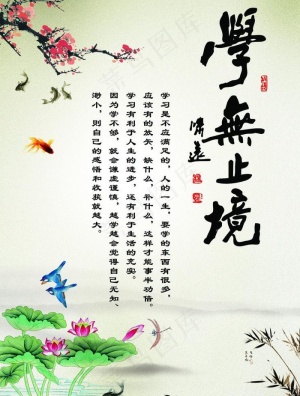 學無止境
学习是不应满足的，人的一生，要学的东西有很多，
应该有的放矢，缺什么，补什么，这样才能事半功倍。
学习有利于人生的进步，还有利于生活的充实。
因为学不够，就会谦虚谨慎，越学越会觉得自己无知、
渺小，则自己的感悟和收获就越大。